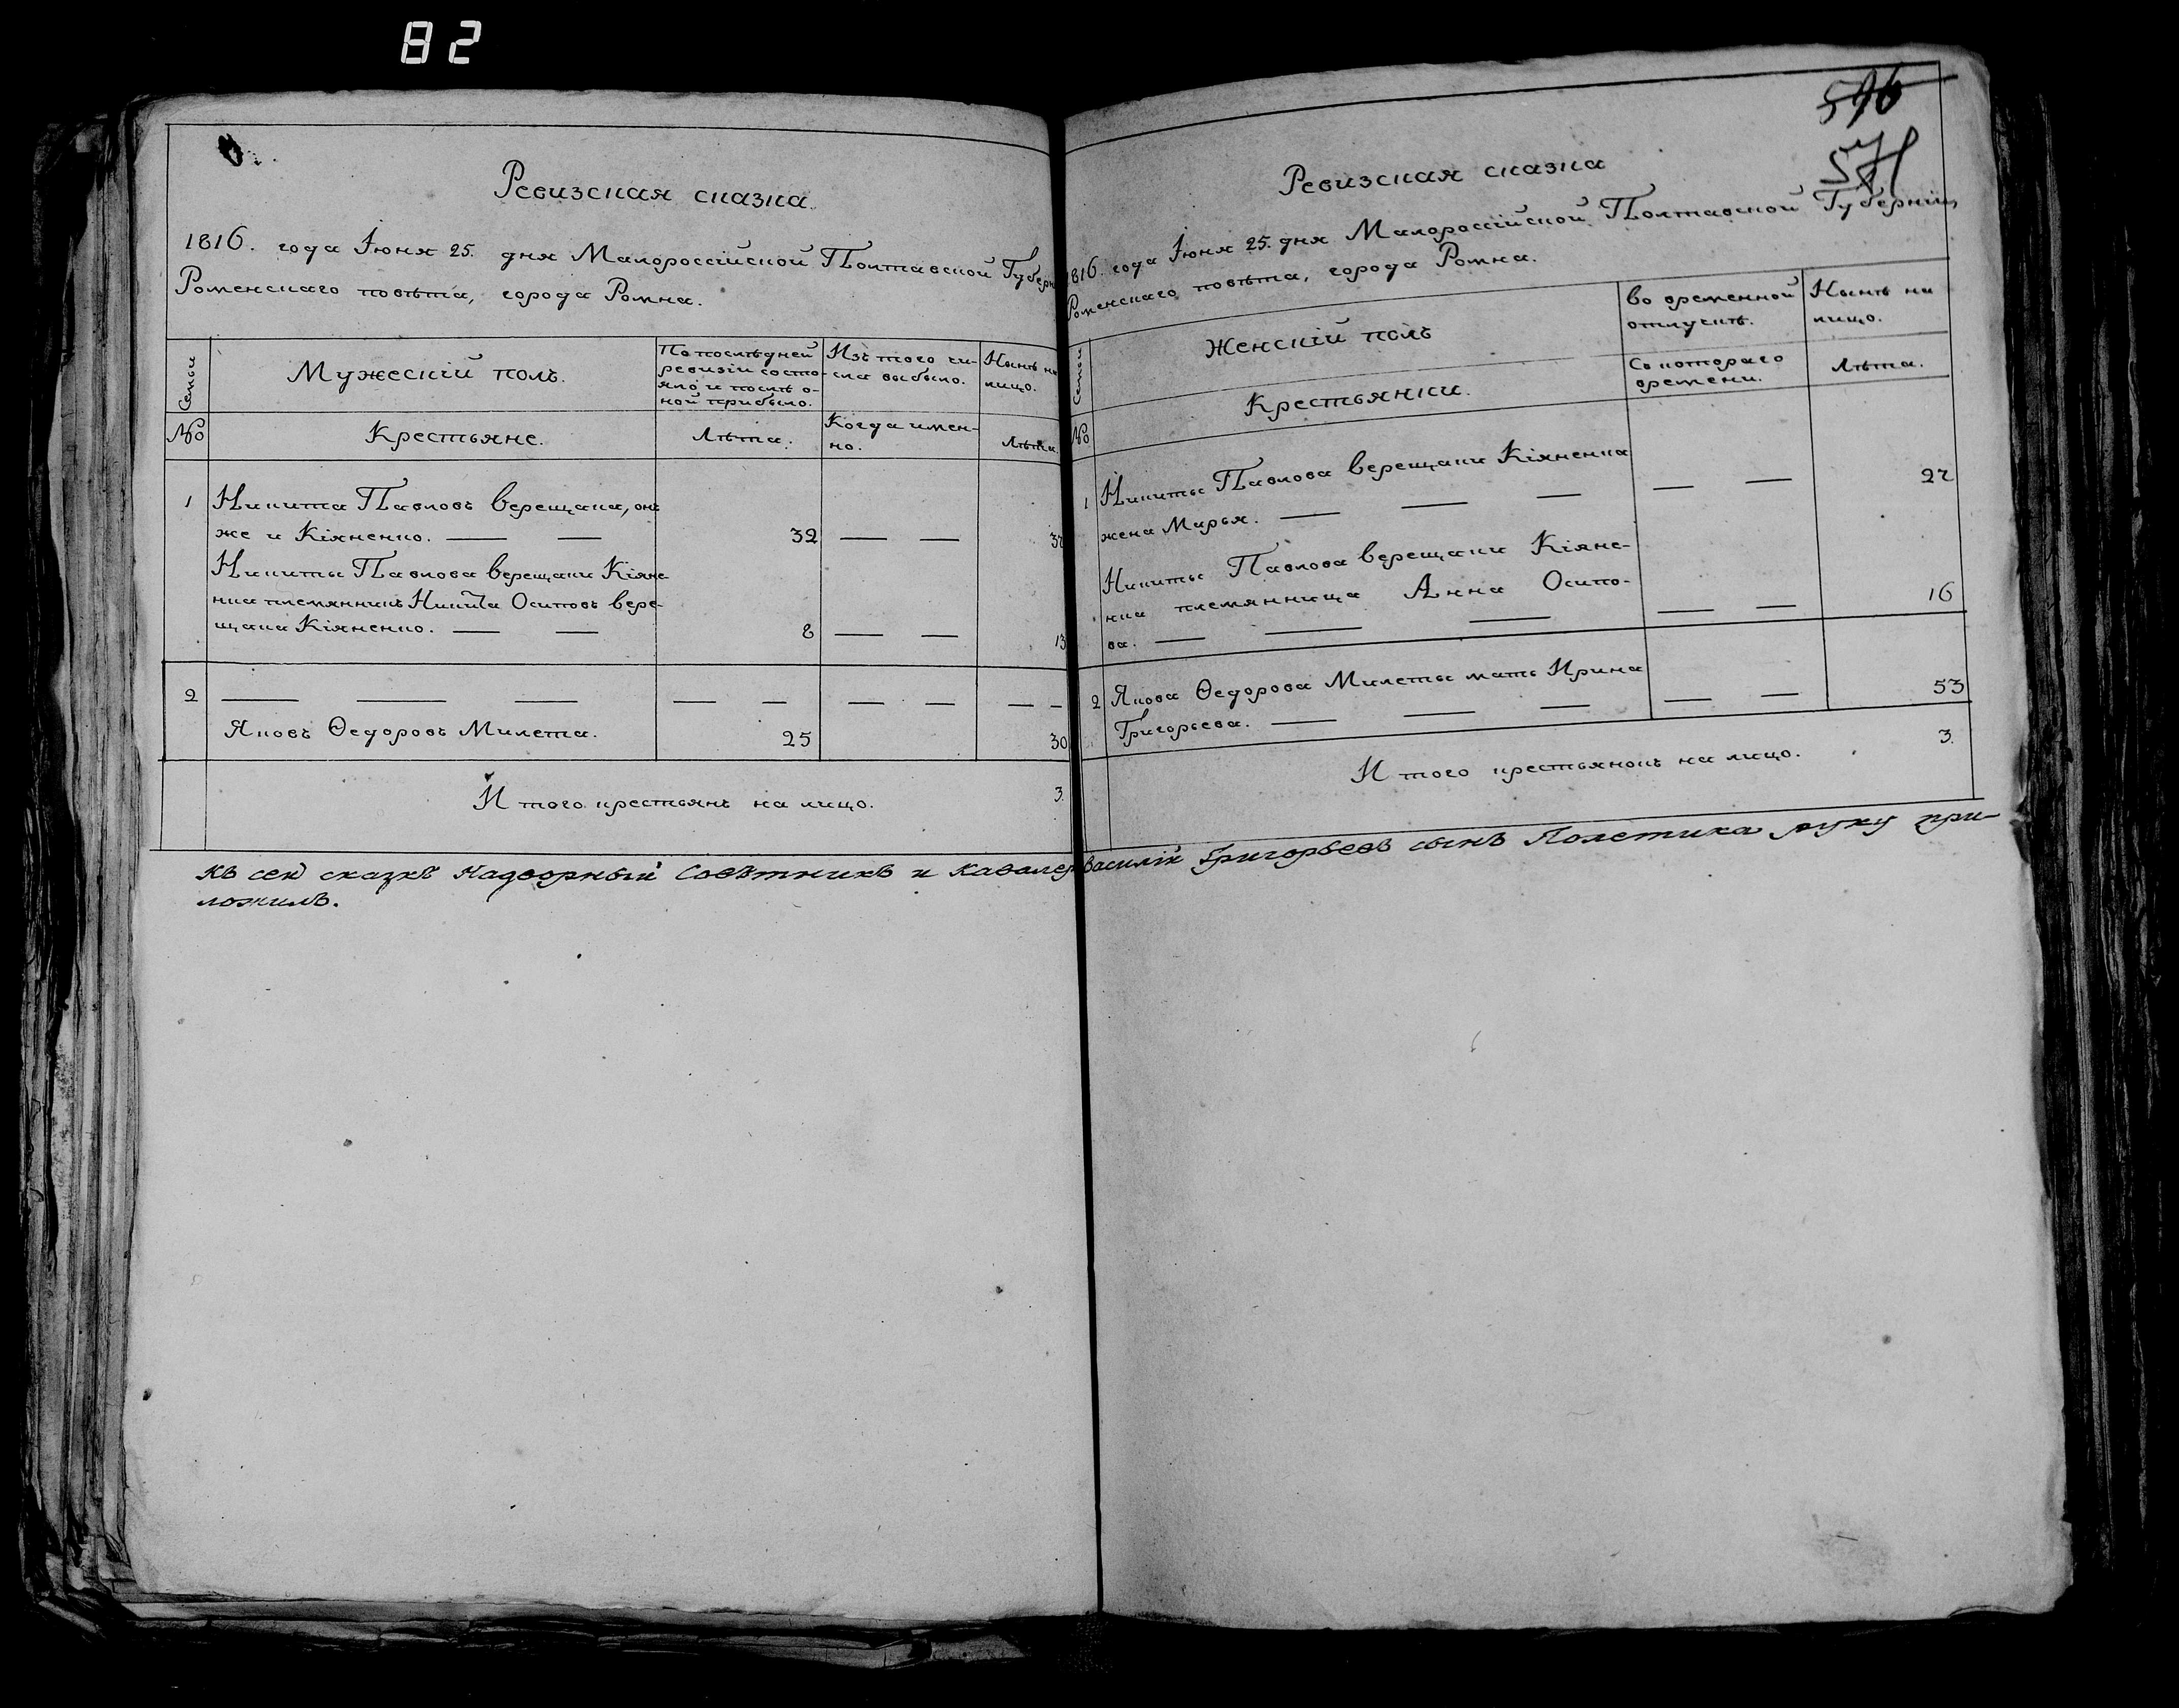 82
Ревизская сказка
1816. года Іюня 25. дня Малороссійской Полтавской Губерн
Роменскаго повѣта, города Ромна.
Семьи
Мужескій полъ.
По послѣдней
ревизіи состо-
яло и послѣ о-
ной прибыло.
Изъ того чи-
сла выбыло.
Нынѣ на
лицо.
№
Крестьяне.
Лѣта.
Когда имен-
но.
Лѣта.
1
Никита Павловъ Верещака, онъ
же и Кіяненко. 32
Никиты Павлова Верещаки Кіяне-
нка племянникъ Никита Осиповъ Вере-
щака Кіяненко. 8 13
2
Яковъ Ѳедоровъ Милета. 25 30
И того крестьянъ на лицо. 3.
596
571
Ревизская сказка
1816. года Іюня 25. дня Малороссійской Полтавской Губерніи,
Роменскаго повѣта, города Ромна.
Семьи
Женскій полъ
Во временной
отлучкѣ.
Нынѣ на
лицо.
№
Крестьянки.
Съ котораго
времени.
Лѣта.
1 Никиты Павлова Верещаки Кіяненка
жена Марья. 27
Никиты Павлова Верещаки Кіяне-
нка племянница Анна Осипо-
ва. 16
2 Якова Ѳедорова Милеты мать Ирина
Григорьева. 53
И того крестьянокъ на лицо. 3.
Къ сей сказкѣ Надворный Совѣтникъ и Кавалер Василій Григорьевъ сынъ Полетика руку при-
ложилъ.